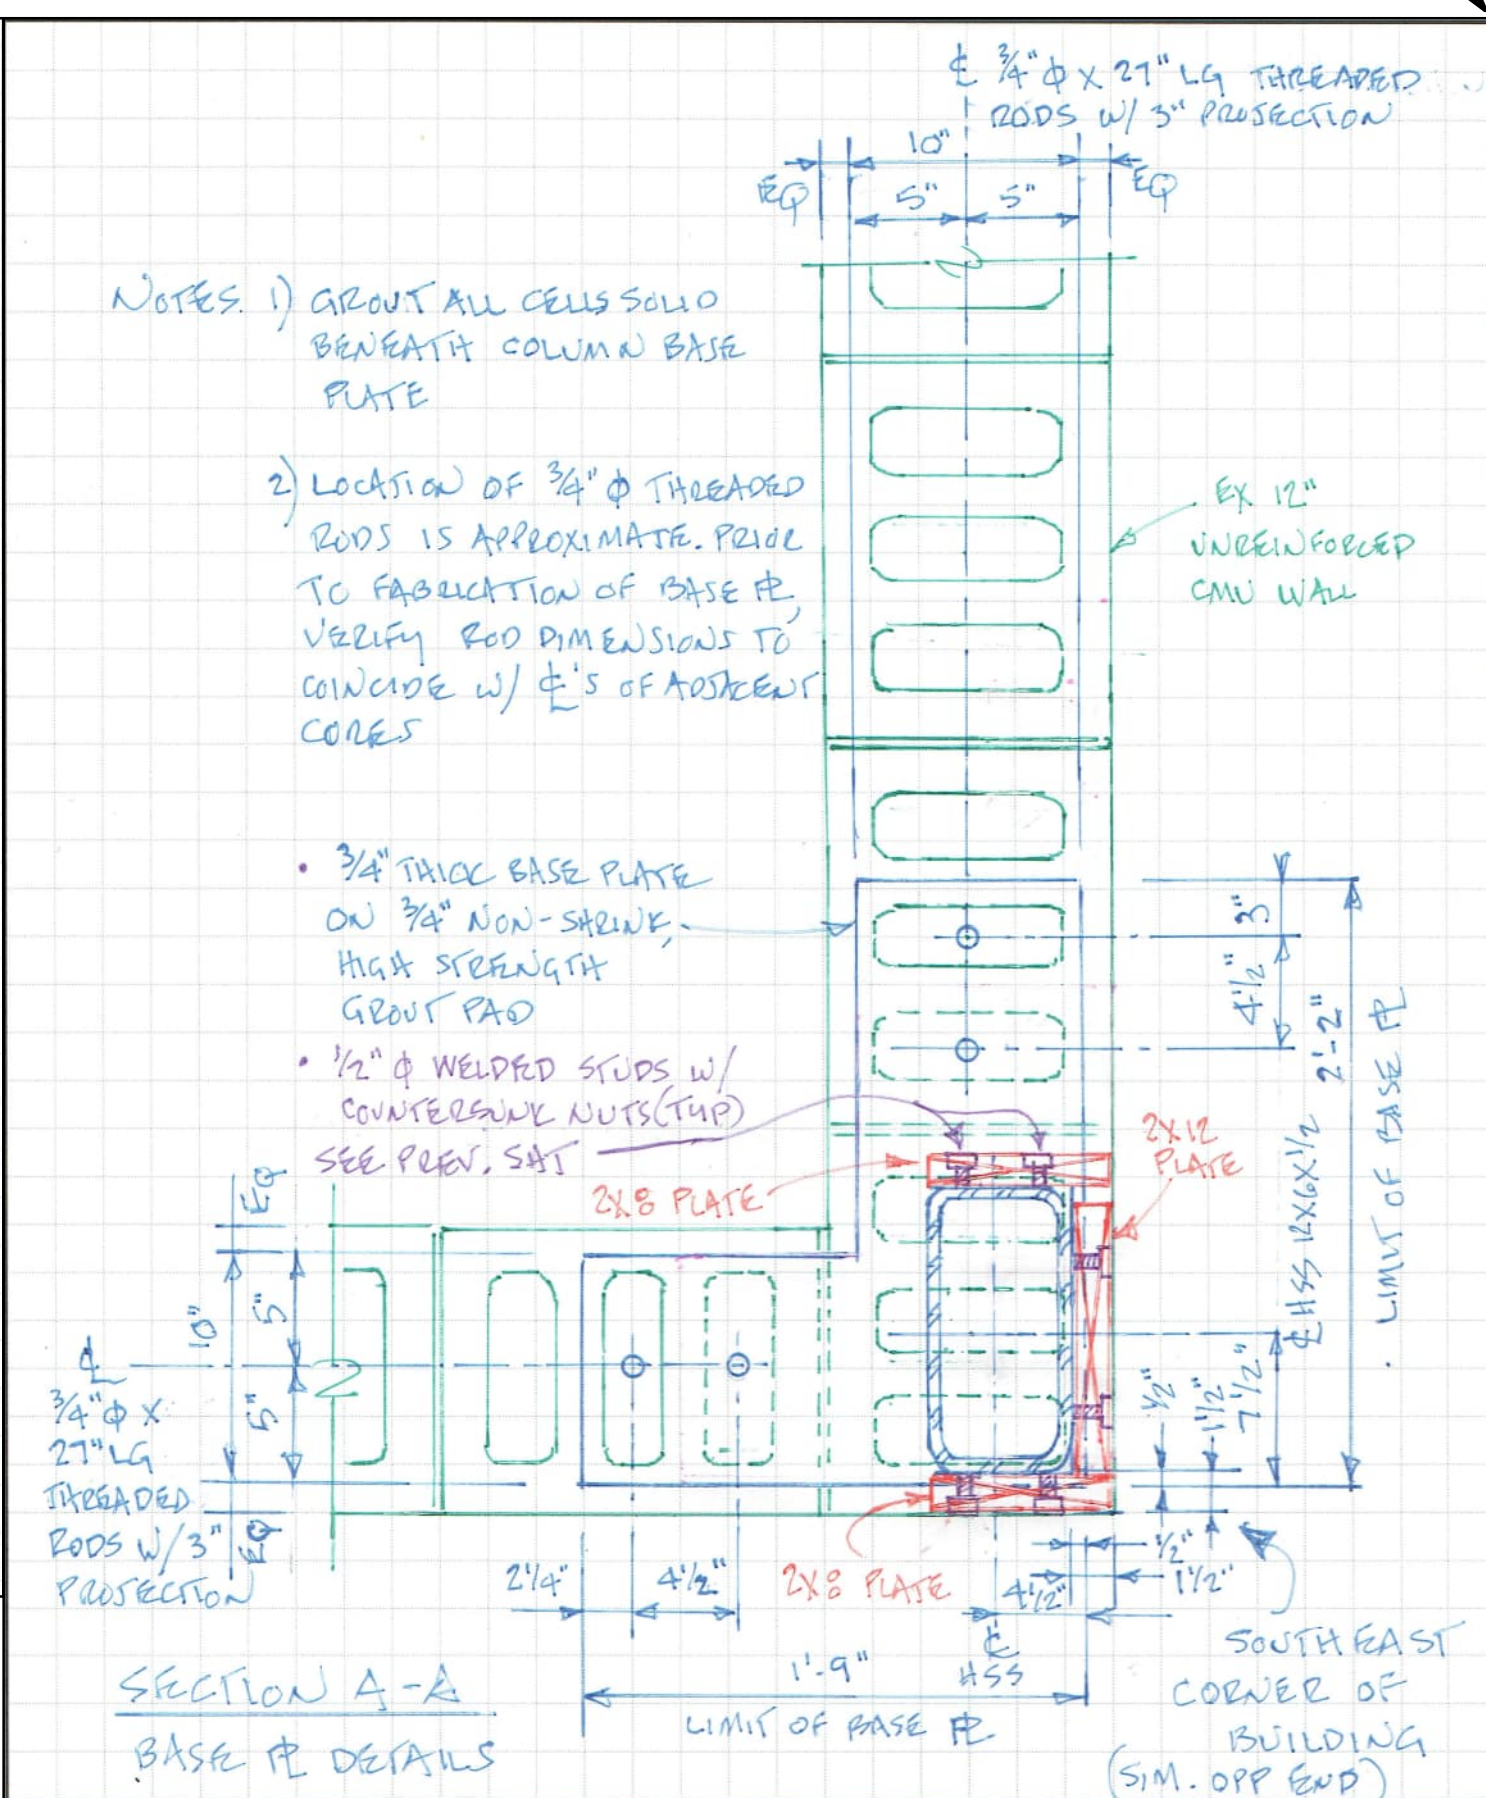 ℄ 3/4" ⌀ X 27" LG THREADED
RODS W/ 3" PROJECTION
10"
EQ
EQ
5"
5"
NOTES. 1) GROUT ALL CELLS SOLID
BENEATH COLUMN BASE
PLATE
2) LOCATION OF 3/4" ⌀ THREADED
RODS IS APPROXIMATE. PRIOR
TO FABRICATION OF BASE PL,
VERIFY ROD DIMENSIONS TO
COINCIDE W/ ℄'S OF ADJACENT
CORES
EX 12"
UNREINFORCED
CMU WALL
• 3/4" THICK BASE PLATE
ON 3/4" NON-SHRINK,
HIGH STRENGTH
GROUT PAD
• 1/2" ⌀ WELDED STUDS W/
COUNTERSUNK NUTS (TYP)
SEE PREV. SHT
3"
4 1/2"
2'-2"
LIMIT OF BASE PL
℄ HSS 12X6X1/2
2X12
PLATE
2X8 PLATE
EQ
10"
5"
5"
EQ
℄
3/4" ⌀ X
27" LG
THREADED
RODS W/ 3"
PROJECTION
1/2"
1 1/2"
7 1/2"
2 1/4"
4 1/2"
2X8 PLATE
4 1/2"
1/2"
1 1/2"
℄
HSS
1'-9"
LIMIT OF BASE PL
SOUTHEAST
CORNER OF
BUILDING
(SIM. OPP END)
SECTION A-A
BASE PL DETAILS